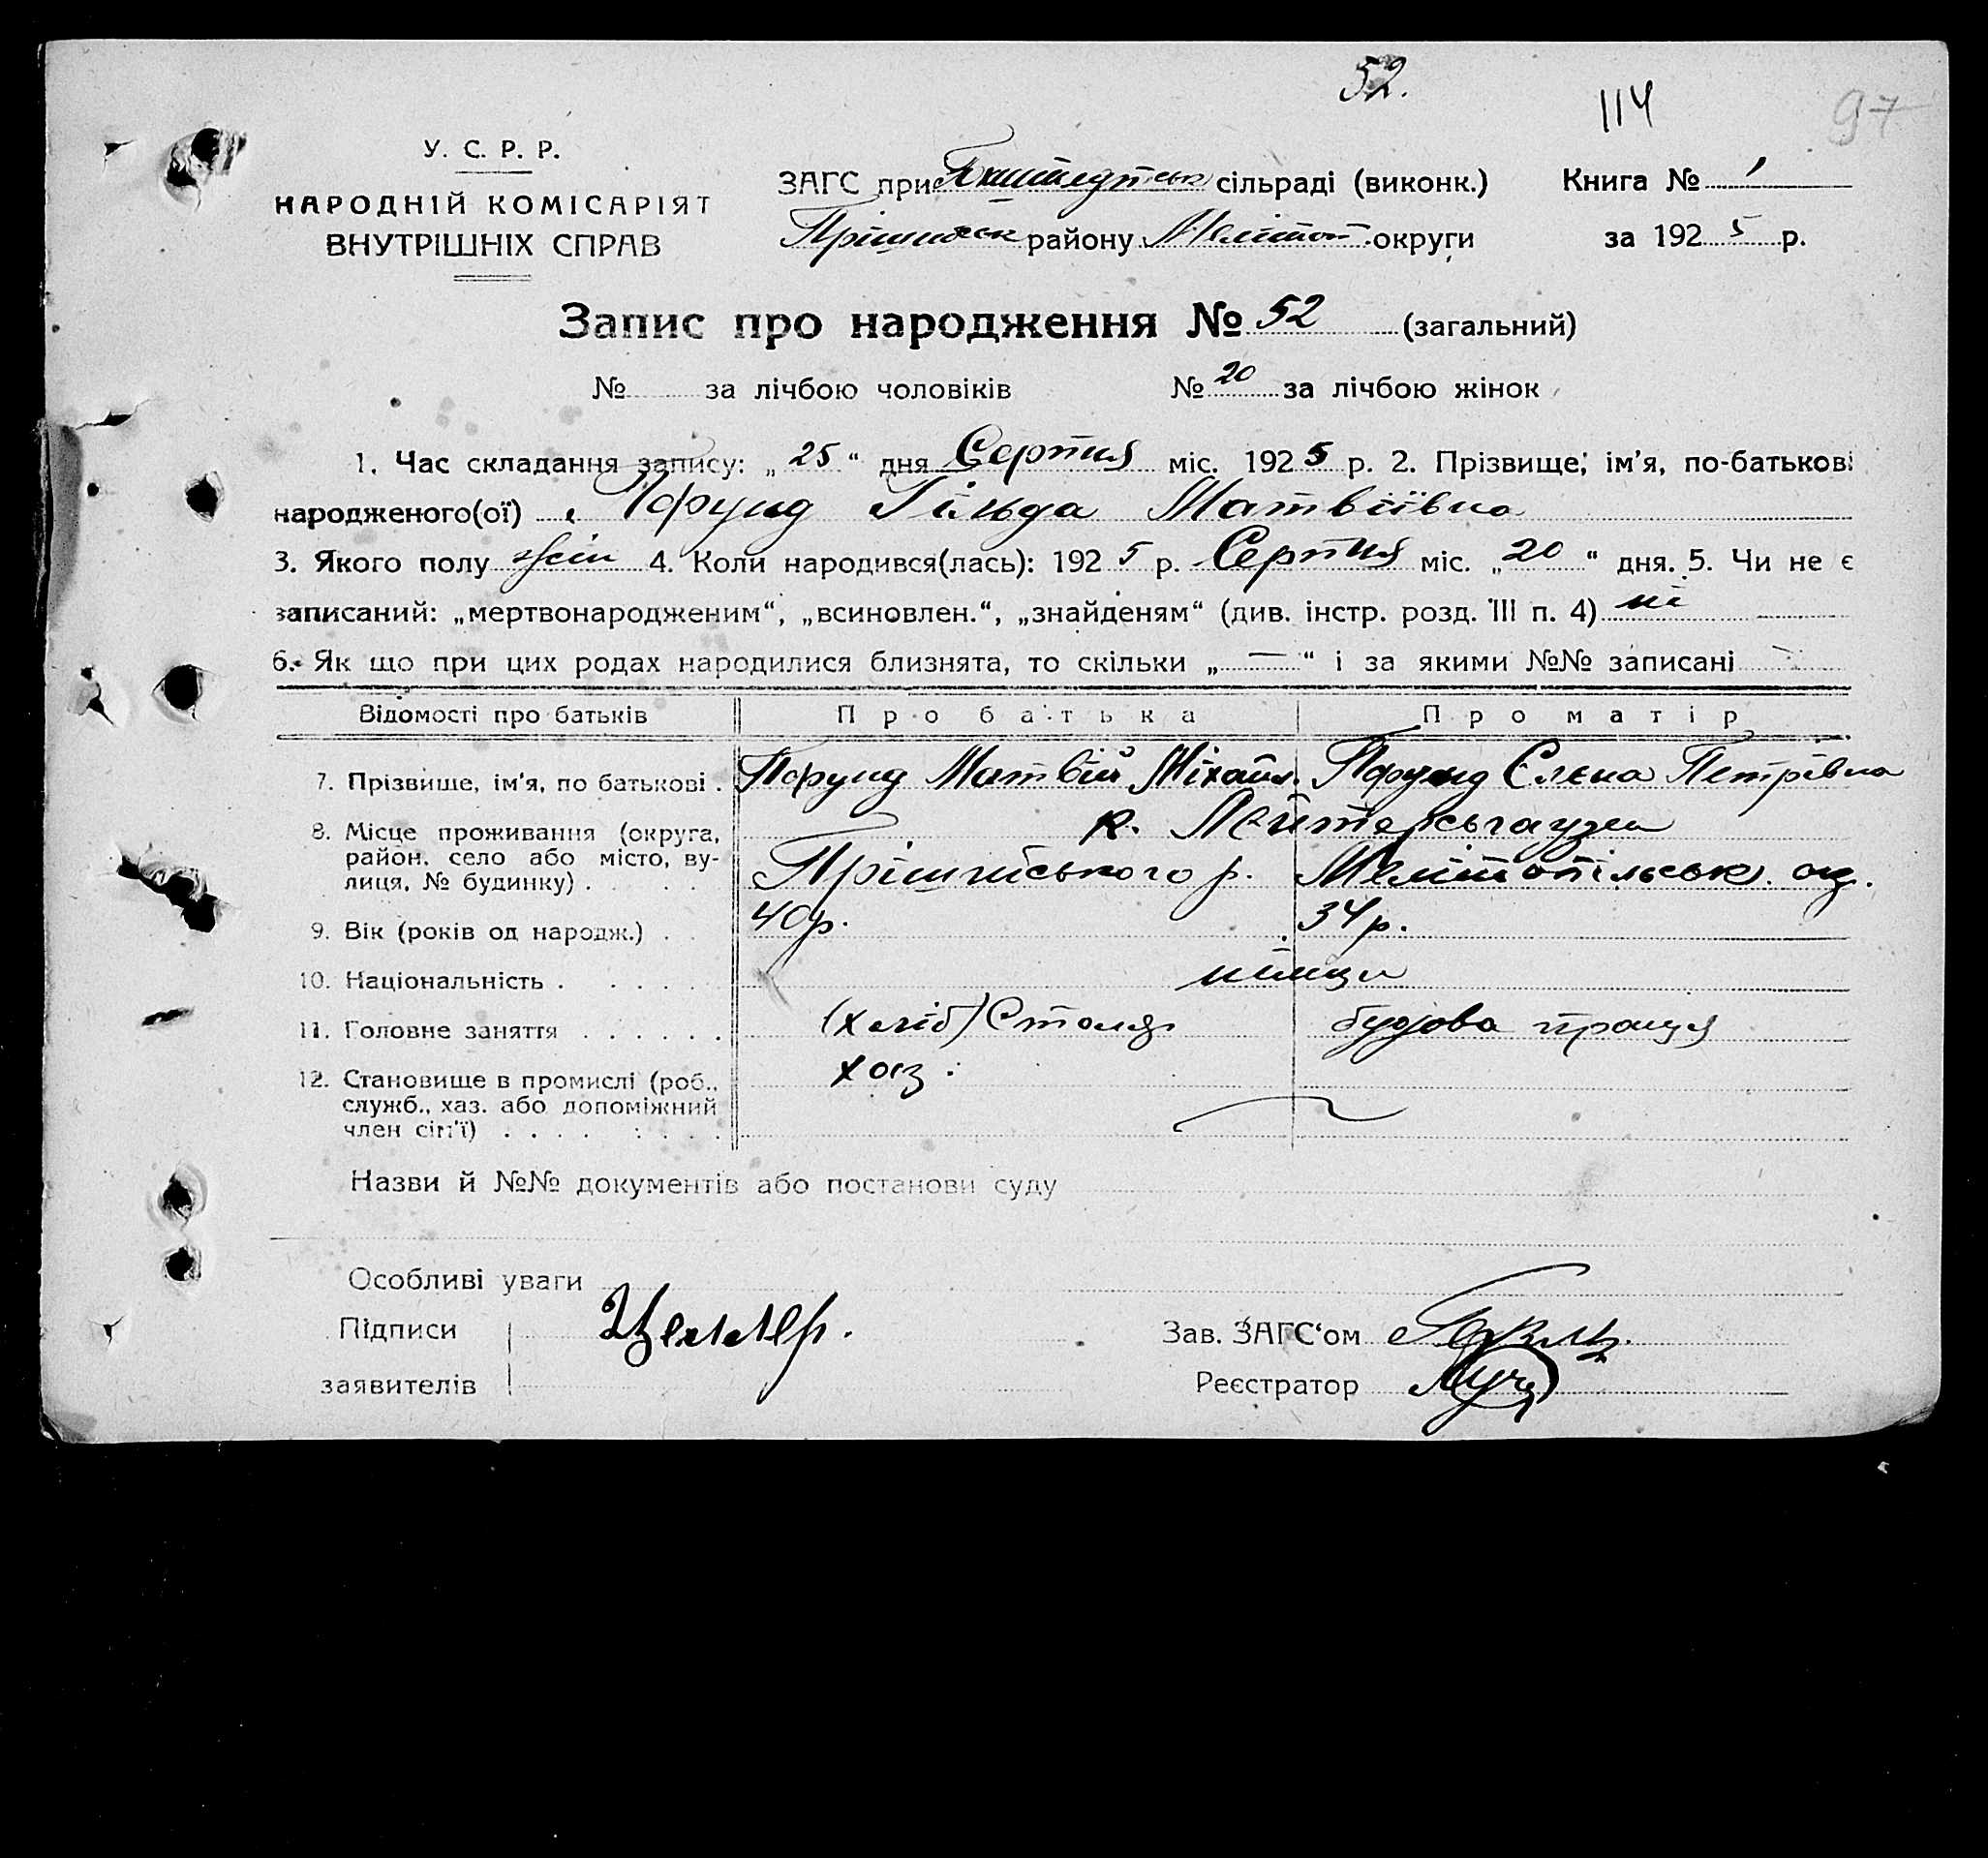 52.
114
97
У. С. Р. Р.
НАРОДНІЙ КОМІСАРІЯТ
ВНУТРІШНІХ СПРАВ
ЗАГС при сільраді (виконк.)
району Мелітоп. округи
Книга № 1
за 1925 р.
Запис про народження № 52 (загальний)
№ за лічбою чоловіків № 20 за лічбою жінок
1. Час складання запису: „25“ дня Серпня міс. 1925 р. 2. Прізвище, ім'я, по-батькові
народженого(ої) Пфунд Гільда Матвіївна
3. Якого полу жін 4. Коли народився(лась): 1925 р. Серпня міс. „20“ дня. 5. Чи не є
записаний: „мертвонародженим“, „всиновлен.“, „знайденям“ (див. інстр. розд. III п. 4) ні
6. Як що при цих родах народилися близнята, то скільки „—“ і за якими №№ записані —
Відомості про батьків Про батька Про матір
7. Прізвище, ім'я, по батькові . Пфунд Матвій Міхайл. Пфунд Єлєна Петрівна
8. Місце проживання (округа, район, село або місто, вулиця, № будинку) . к. Лейтерсьгаузен
Прішибського р. Мелітопільськ. ок.
9. Вік (років од народж.) . . 40р. 34р.
10. Національність . німци
11. Головне заняття (хліб) Столяр будова праця
12. Становище в промислі (роб., служб., хаз. або допоміжний член сім'ї) хаз.
Назви й №№ документів або постанови суду
Особливі уваги
Підписи Целлер.
заявителів
Зав. ЗАГС'ом
Реєстратор